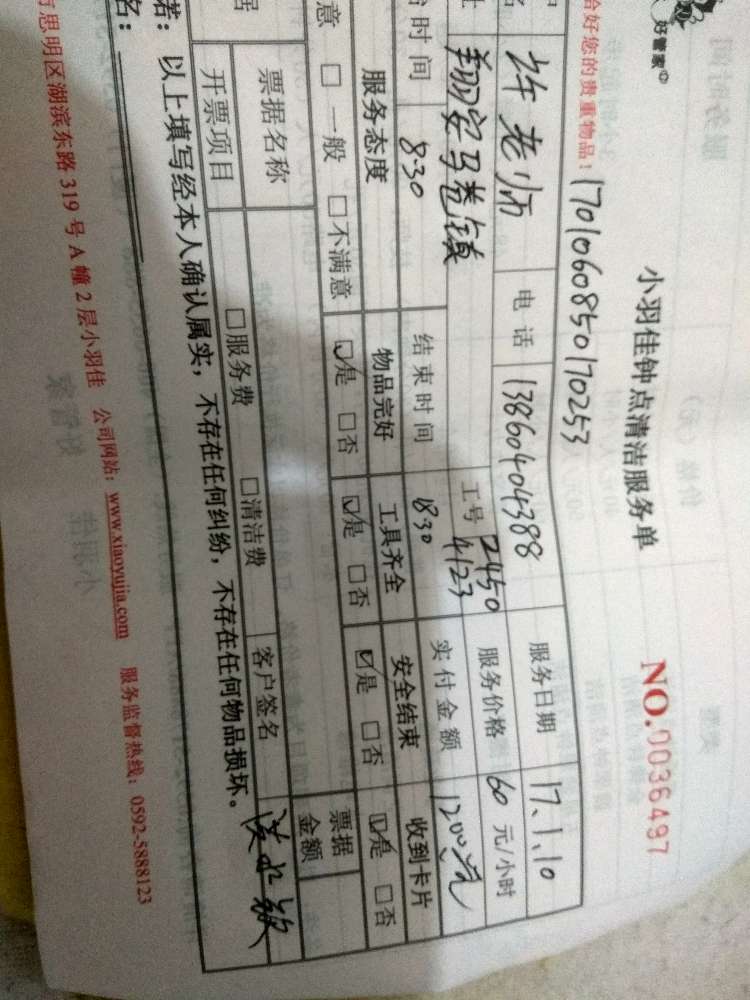 好管家
小羽佳钟点清洁服务单
NO.0036497
恰好您的贵重物品！ 170106085017 0253
许老师 电话 13860404388 服务日期 17.1.10
翔安马巷镇 工号 2450 4123 服务价格 60 元/小时
时间 8:30 结束时间 18:30 实付金额 1200元
服务态度 物品完好 工具齐全 安全结束 收到卡片
意 □ 一般 □ 不满意 ☑是 □否 ☑是 □否 ☑是 □否 ☑是 □否
票据名称 票据金额
开票项目 □服务费 □清洁费 客户签名
若：以上填写经本人确认属实，不存在任何纠纷，不存在任何物品损坏。
名：
思明区湖滨东路 319 号 A 幢 2 层小羽佳 公司网站：www.xiaoyujia.com 服务监督热线：0592-5888123